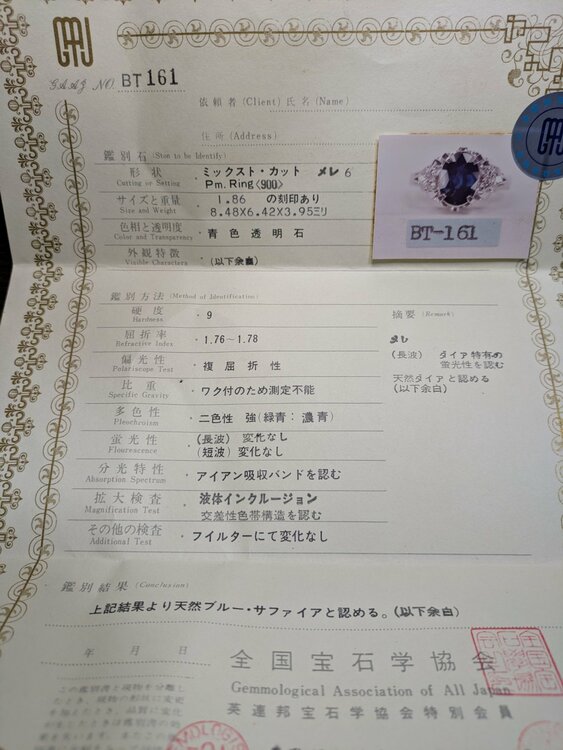 G.A.A.J. NO. BT161
依頼者(Client)氏名(Name)
住所(Address)
鑑別石(Ston to be Identify)
形状 ミックスト・カット メレ6
Cutting or Setting Pm.Ring〈900〉
サイズと重量 1.86 の刻印あり
Size and Weight 8.48X6.42X3.95ミリ
色相と透明度 青色透明石
Color and Transparency
外観特徴 (以下余白)
Visible Characters
BT-161
鑑別方法(Method of Identification)
硬度 9
Hardness
屈折率 1.76~1.78
Refractive Index
偏光性 複屈折性
Polariscope Test
比重 ワク付のため測定不能
Specific Gravity
多色性 二色性 強(緑青:濃青)
Pleochroism
蛍光性 (長波)変化なし
Flourescence (短波)変化なし
分光特性 アイアン吸収バンドを認む
Absorption Spectrum
拡大検査 液体インクルージョン
Magnification Test 交差性色帯構造を認む
その他の検査 フイルターにて変化なし
Additional Test
摘要(Remark)
メレ
(長波) ダイア特有の
蛍光性を認む
天然ダイアと認める
(以下余白)
鑑別結果(Conclusion)
上記結果より天然ブルー・サファイアと認める。(以下余白)
年 月 日
全国宝石学協会
Gemmological Association of All Japan
英連邦宝石学協会特別会員
この鑑別書と現物を分離し